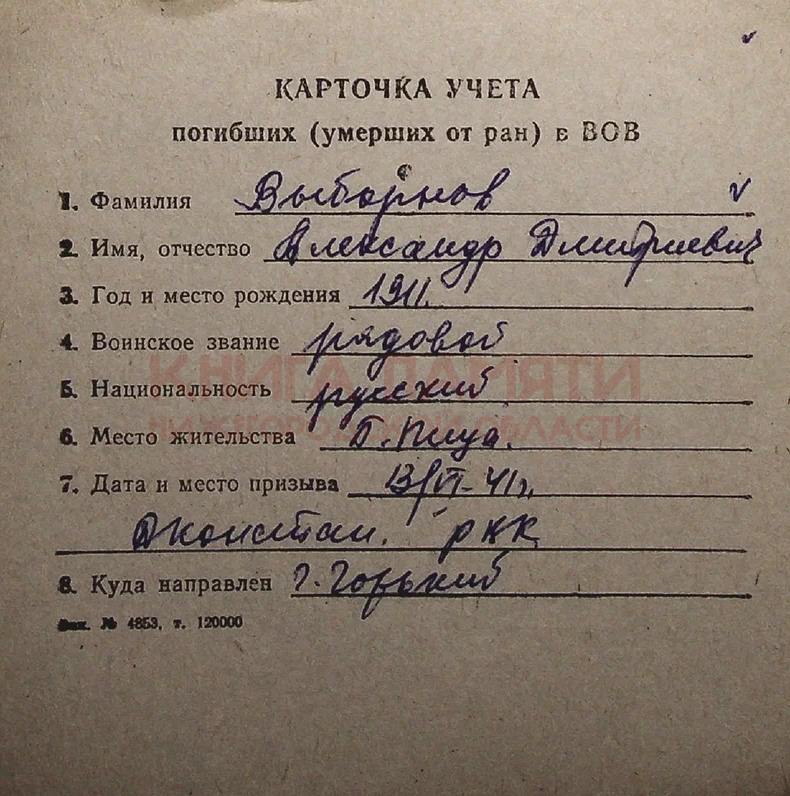 КАРТОЧКА УЧЕТА
погибших (умерших от ран) в ВОВ
1. Фамилия Выборнов
2. Имя, отчество Александр Дмитриевич
3. Год и место рождения 1911.
4. Воинское звание рядовой
КНИГА ПАМЯТИ
5. Национальность русский
НИЖЕГОРОДСКОЙ ОБЛАСТИ
6. Место жительства Б. Пица.
7. Дата и место призыва 13/VI-41г.
Дконстан. РВК
8. Куда направлен г. Горький
Зак. № 4853, т. 120000